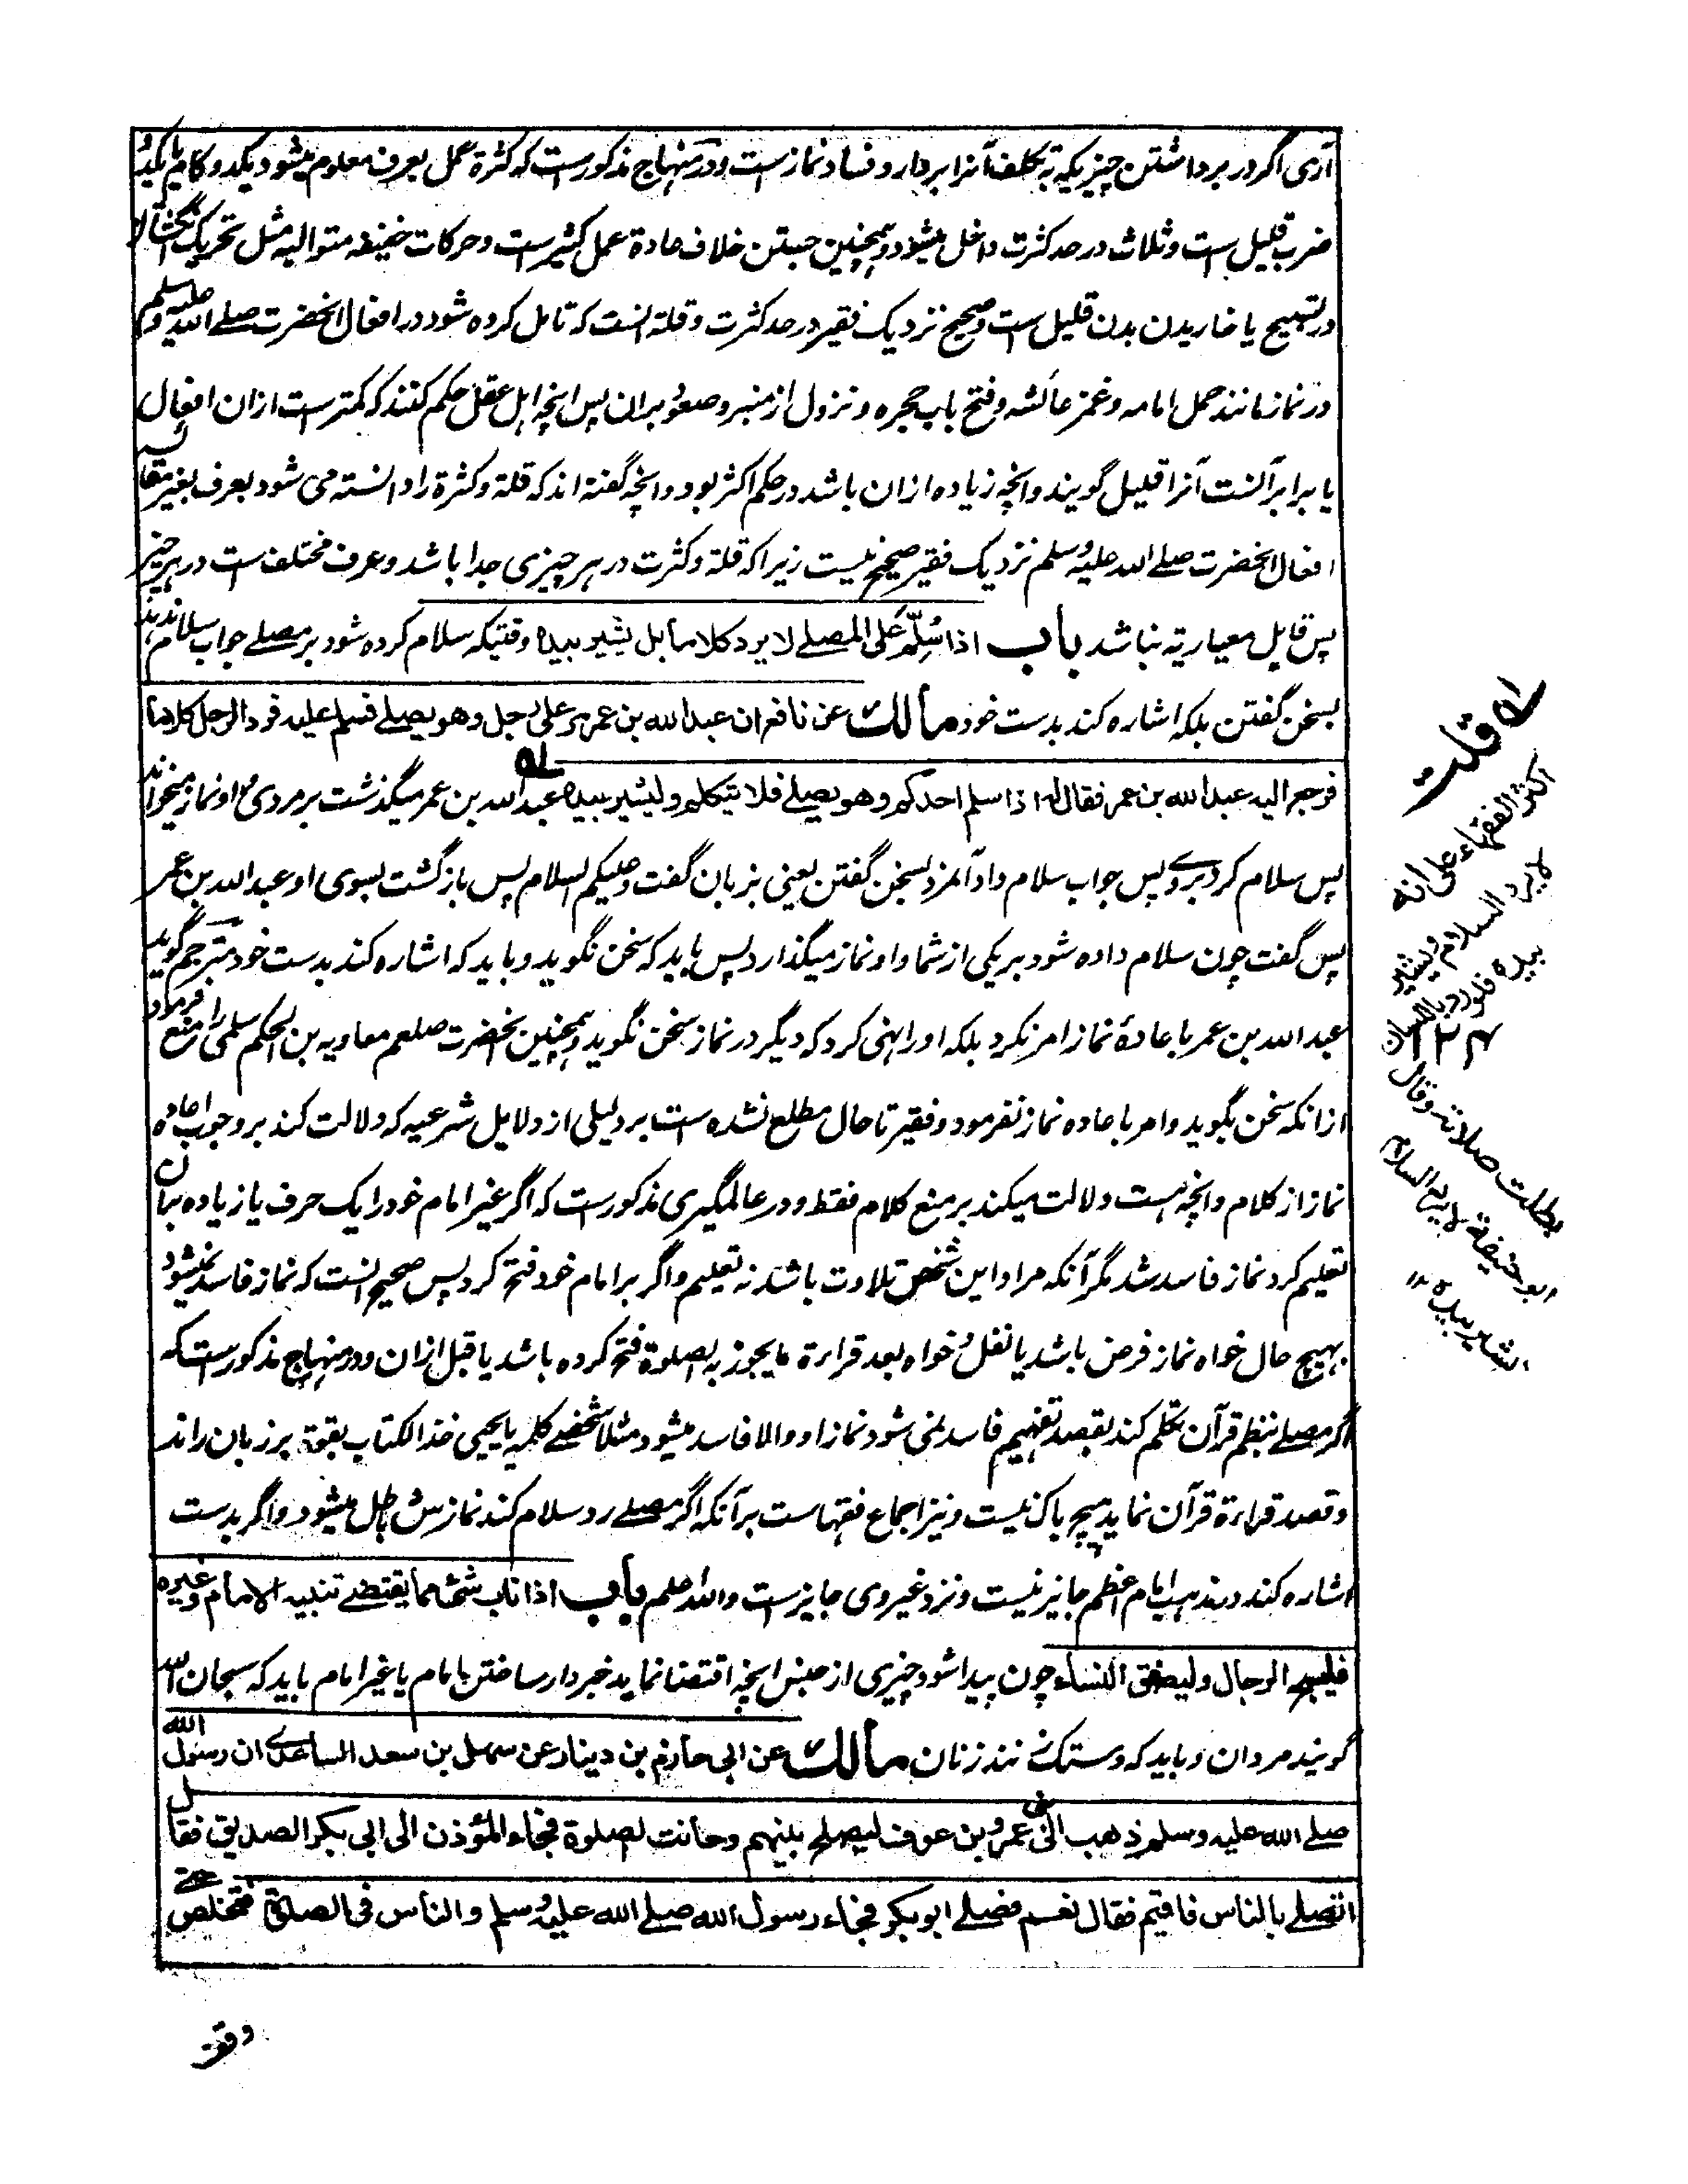 آری اگر در برداشتن چیزیکه به تکلف آنرا بردارد فساد نمازست و در منهاج مذکورست که کثرة عمل بعرف معلوم میشود یکد و کام یا یکد
ضرب قلیل ست و ثلاث در حد کثرت داخل میشود و همچنین جستن خلاف عادة عمل کثیرست و حرکات خفیفه متوالیه مثل تحریک انگشتان
در تسبیح یا خاریدن بدن قلیل ست و صحیح نزدیک فقیر در حد کثرت و قلة انست که تامل کرده شود در افعال انحضرت صلے الله علیه وسلم
در نماز مانند حمل امامه و غمز عائشه و فتح باب حجره و نزول از منبر و صعود بران پس انچه اهل عقل حکم کنند که کمترست ازان افعال
یا برابر آنست آنرا قلیل گویند و انچه زیاده ازان باشد در حکم اکثر بود و انچه گفته اند که قلة و کثرة را دانسته می شود بعرف بغیر مقایسه
افعال انحضرت صلے الله علیه وسلم نزدیک فقیر صحیح نیست زیرا که قلة و کثرت در هر چیزی جدا باشد و عرف مختلف ست در هر چیز
پس قابل معیاریة نباشد باب اذا سُلّم عَلی المصلے لا یرد کلاما بل یشیر بیده وقتیکه سلام کرده شود بر مصلے جواب سلام ندهد
بسخن گفتن بلکه اشاره کند بدست خود مالك عن نافع ان عبد الله بن عمر مر علی رجل وهو یصلے فسلم علیه فرد الرجل کلاما
فرجع الیه عبد الله بن عمر فقال له اذا سلم احدکم وهو یصلے فلا یتکلم ولیشیر بیده عبد الله بن عمر میگذشت بر مردی و او نماز میخواند
پس سلام کرد بر وے پس جواب سلام داد آنمرد بسخن گفتن یعنی بزبان گفت وعلیکم السلام پس باز گشت بسوی او عبد الله بن عمر
پس گفت چون سلام داده شود بر یکی از شما و او نماز میگذارد پس باید که سخن نگوید و باید که اشاره کند بدست خود مترجم گوید
عبد الله بن عمر باعادهٔ نماز امر نکرد بلکه او را نهی کرد که دیگر در نماز سخن نگوید و همچنین آنحضرت صلعم معاویه بن الحکم سلمی را منع فرمود
ازانکه سخن بگوید و امر باعاده نماز نفرمود و فقیر تا حال مطلع نشده ست بر دلیلی از دلایل شرعیه که دلالت کند بر وجوب اعاده
نماز از کلام و انچه هست دلالت میکند بر منع کلام فقط و در عالمگیری مذکورست که اگر غیر امام خود را یک حرف یا زیاده بیان
تعلیم کرد نماز فاسد شد مگر آنکه مراد این شخص تلاوت باشد نه تعلیم و اگر بر امام خود فتح کرد پس صحیح انست که نماز فاسد نمیشود
بهیچ حال خواه نماز فرض باشد یا نفل و خواه بعد قراءة ما یجوز به الصلوة فتح کرده باشد یا قبل ازان و در منهاج مذکورست که
اگر مصلے بنظم قرآن تکلم کند بقصد تفهیم فاسد نمی شود نماز او و الا فاسد میشود مثلا شخصے کلمه یا یحیی خذ الکتاب بقوة بر زبان راند
و قصد قراءة قرآن نماید هیچ باک نیست و نیز اجماع فقهاست بر آنکه اگر مصلے رد سلام کند نمازش باطل میشود و اگر بدست
اشاره کند در مذهب امام اعظم جایز نیست و نزد غیر وی جایزست والله اعلم باب اذا ناب شئ مما یقتضے تنبیه الامام وغیره
فلیسبح الرجال ولیصفق النساء چون پیدا شود چیزی از جنس انچه اقتضا نماید خبردار ساختن امام یا غیر امام باید که سبحان الله
گویند مردان و باید که دستک زنند زنان مالك عن ابی حازم بن دینار عن سهل بن سعد الساعدے ان رسول الله
صلے الله علیه وسلم ذهب الی بنی عمرو بن عوف لیصلح بینهم وحانت الصلوة فجاء المؤذن الی ابی بکر الصدیق فقال
اتصلے بالناس فاقیم فقال نعم فصلے ابو بکر فجاء رسول الله صلے الله علیه وسلم والناس فی الصلوة فتخلص حتے
وقف
له قلت
اکثر الفقهاء علی انه
لا یرد السلام ویشیر
بیده فلو رد باللسان
۱۲۴
بطلت صلاته وقال
ابو حنیفة لا یرد السلام
یشیر بیده ۱۲